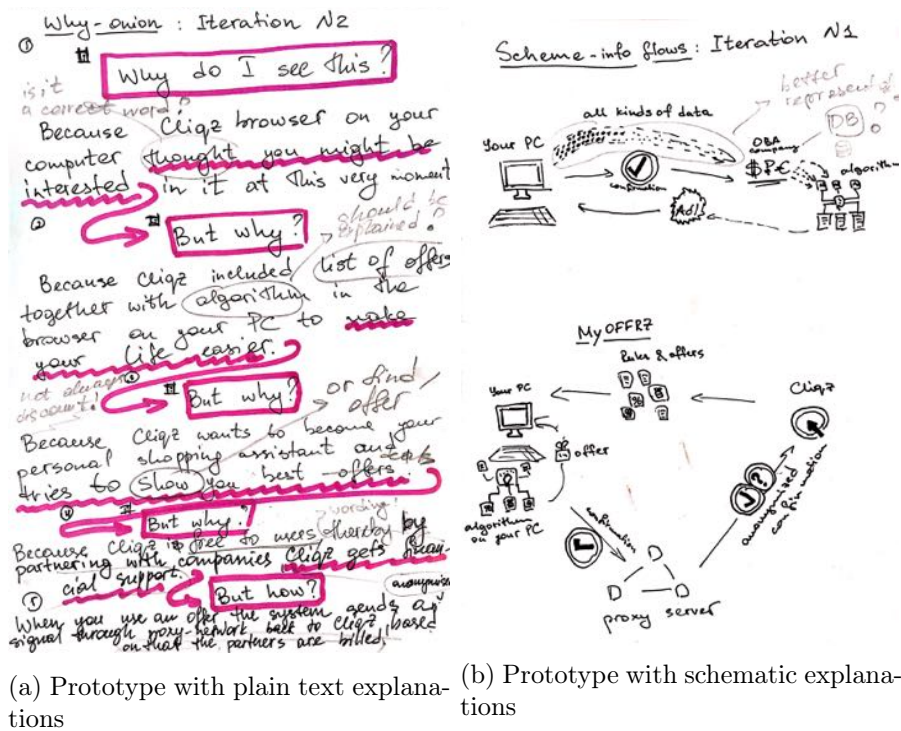 Why-onion : Iteration №2
①
Why do I see this?
is it
a correct word?
Because Cliqz browser on your
computer thought you might be
interested in it at this very moment
②
But why?
should be
explained?
Because Cliqz included list of offers
together with algorithm in the
browser on your PC to make
your life easier.
③
not always
discount!
But why?
or find
offer
Because Cliqz wants to become your
personal shopping assistant and
tries to show you best offers
④
But why?
wording!
Because Cliqz is free to users thereby by
partnering with companies Cliqz gets finan-
cial support.
⑤
But how?
When you use an offer the system sends a
signal through proxy-network back to Cliqz, based
on that the partners are billed!
(a) Prototype with plain text explana-
tions
Scheme-info flows : Iteration №1
better
represent
all kinds of data
DB
?
Your PC
OBA
company
$₽€
algorithm
confirmation
Ad!
MyOFFRZ
Rules & offers
Your PC
Cliqz
offer
algorithm
on your PC
confirmation
?
anonymized
confirmation
proxy server
(b) Prototype with schematic explana-
tions